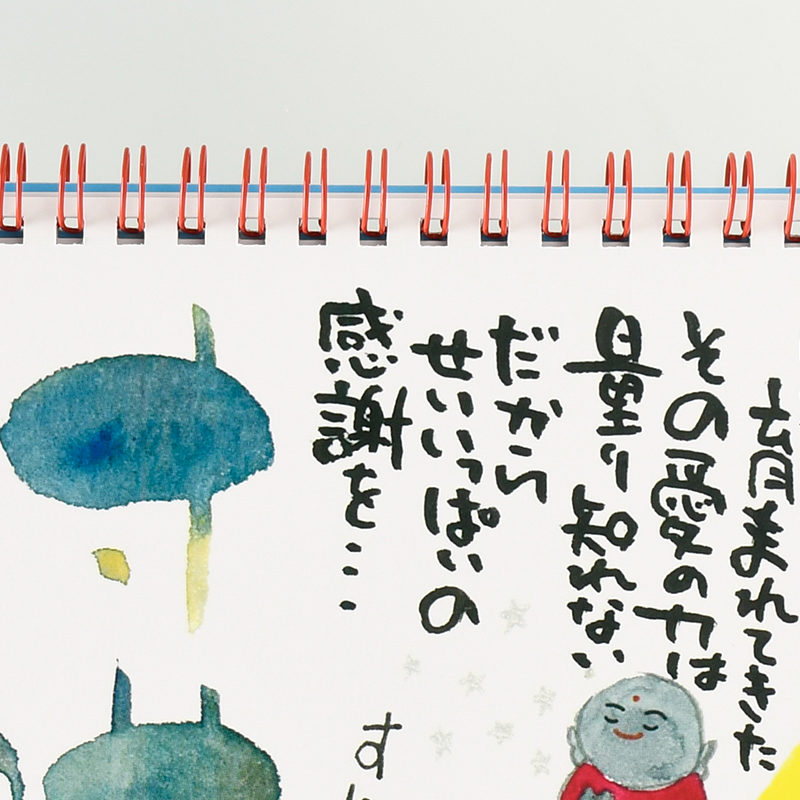 育まれてきた
その愛の力は
量り知れない
だから
せいいっぱいの
感謝を…
す